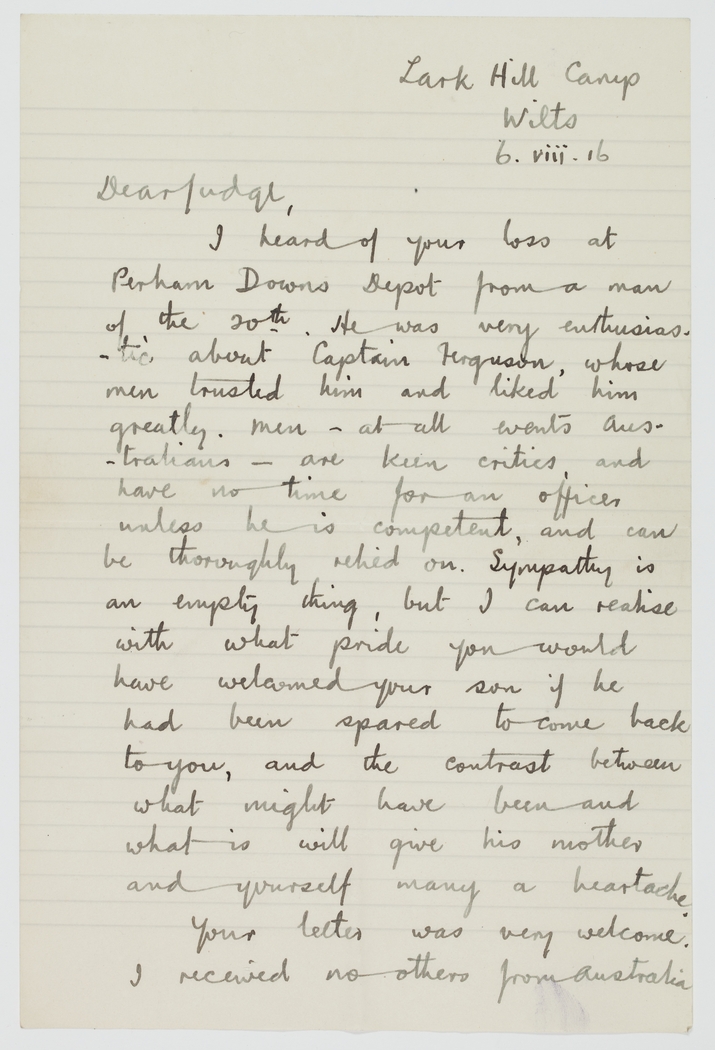 Lark Hill Camp
Wilts
6. viii. 16
Dear Judge,
I heard of your loss at
Perham Downs Depot from a man
of the 20th. He was very enthusias-
-tic about Captain Ferguson, whose
men trusted him and liked him
greatly. Men - at all events Aus-
-tralians - are keen critics, and
have no time for an officer
unless he is competent, and can
be thoroughly relied on. Sympathy is
an empty thing, but I can realise
with what pride you would
have welcomed your son if he
had been spared to come back
to you, and the contrast between
what might have been and
what is will give his mother
and yourself many a heartache.
Your letter was very welcome.
I received no others from Australia